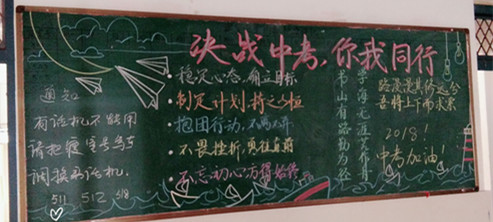 决战中考,你我同行
通知
有话机不能用
请把寝室号写在
调换的话机.
511 512 518
·稳定心态,确立目标
·制定计划,持之以恒
·抱团行动,不离不弃
·不畏挫折,勇往直前
·不忘初心方得始终
书山有路勤为径
学海无涯苦作舟
路漫漫其修远兮
吾将上下而求索
2018!
中考加油!